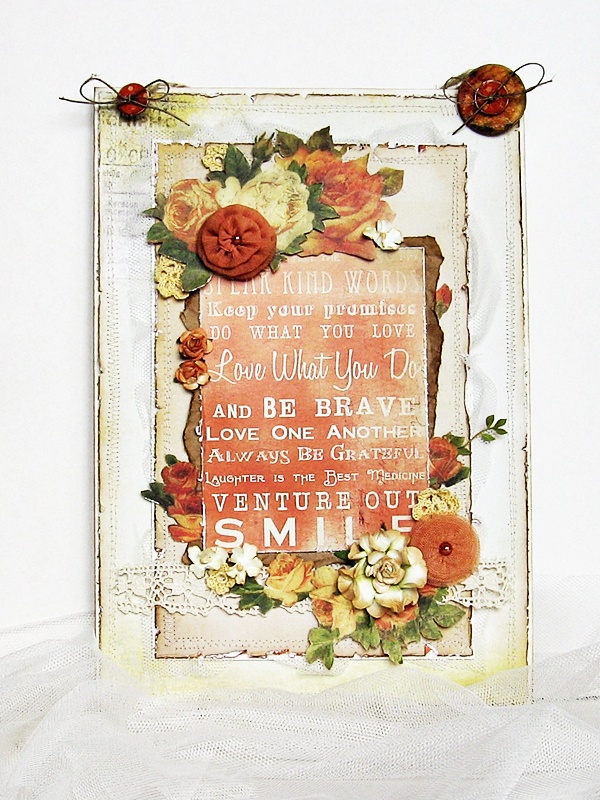 SPEAK KIND WORDS
Keep your promises
DO WHAT YOU LOVE
Love What You Do
AND BE BRAVE
LOVE ONE ANOTHER
ALWAYS BE GRATEFUL
LAUGHTER IS THE BEST MEDICINE
VENTURE OUT
SMILE